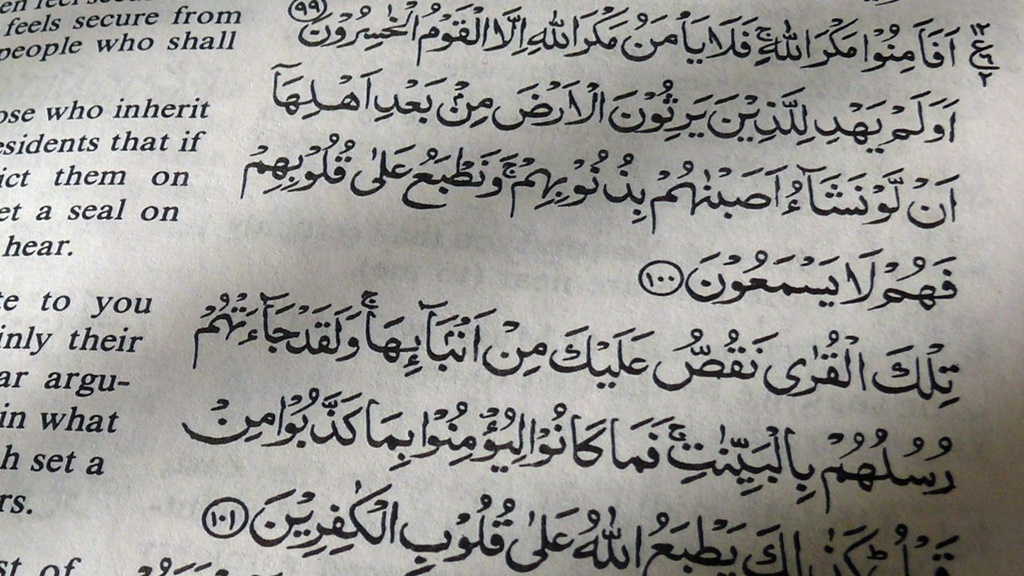 feels secure from
people who shall
ose who inherit
esidents that if
ict them on
et a seal on
hear.
te to you
inly their
ar argu-
in what
h set a
rs.
st of
اَفَاَمِنُوْا مَكْرَ اللّٰهِ ۚ فَلَا يَاْمَنُ مَكْرَ اللّٰهِ اِلَّا الْقَوْمُ الْخٰسِرُوْنَ ﴿٩٩﴾
اَوَلَمْ يَهْدِ لِلَّذِيْنَ يَرِثُوْنَ الْاَرْضَ مِنْۢ بَعْدِ اَهْلِهَاۤ
اَنْ لَّوْ نَشَآءُ اَصَبْنٰهُمْ بِذُنُوْبِهِمْ ۚ وَنَطْبَعُ عَلٰى قُلُوْبِهِمْ
فَهُمْ لَا يَسْمَعُوْنَ ﴿١٠٠﴾
تِلْكَ الْقُرٰى نَقُصُّ عَلَيْكَ مِنْ اَنْۢبَآئِهَا ۚ وَلَقَدْ جَآءَتْهُمْ
رُسُلُهُمْ بِالْبَيِّنٰتِ ۚ فَمَا كَانُوْا لِيُؤْمِنُوْا بِمَا كَذَّبُوْا مِنْ
قَبْلُ ؕ كَذٰلِكَ يَطْبَعُ اللّٰهُ عَلٰى قُلُوْبِ الْكٰفِرِيْنَ ﴿١٠١﴾